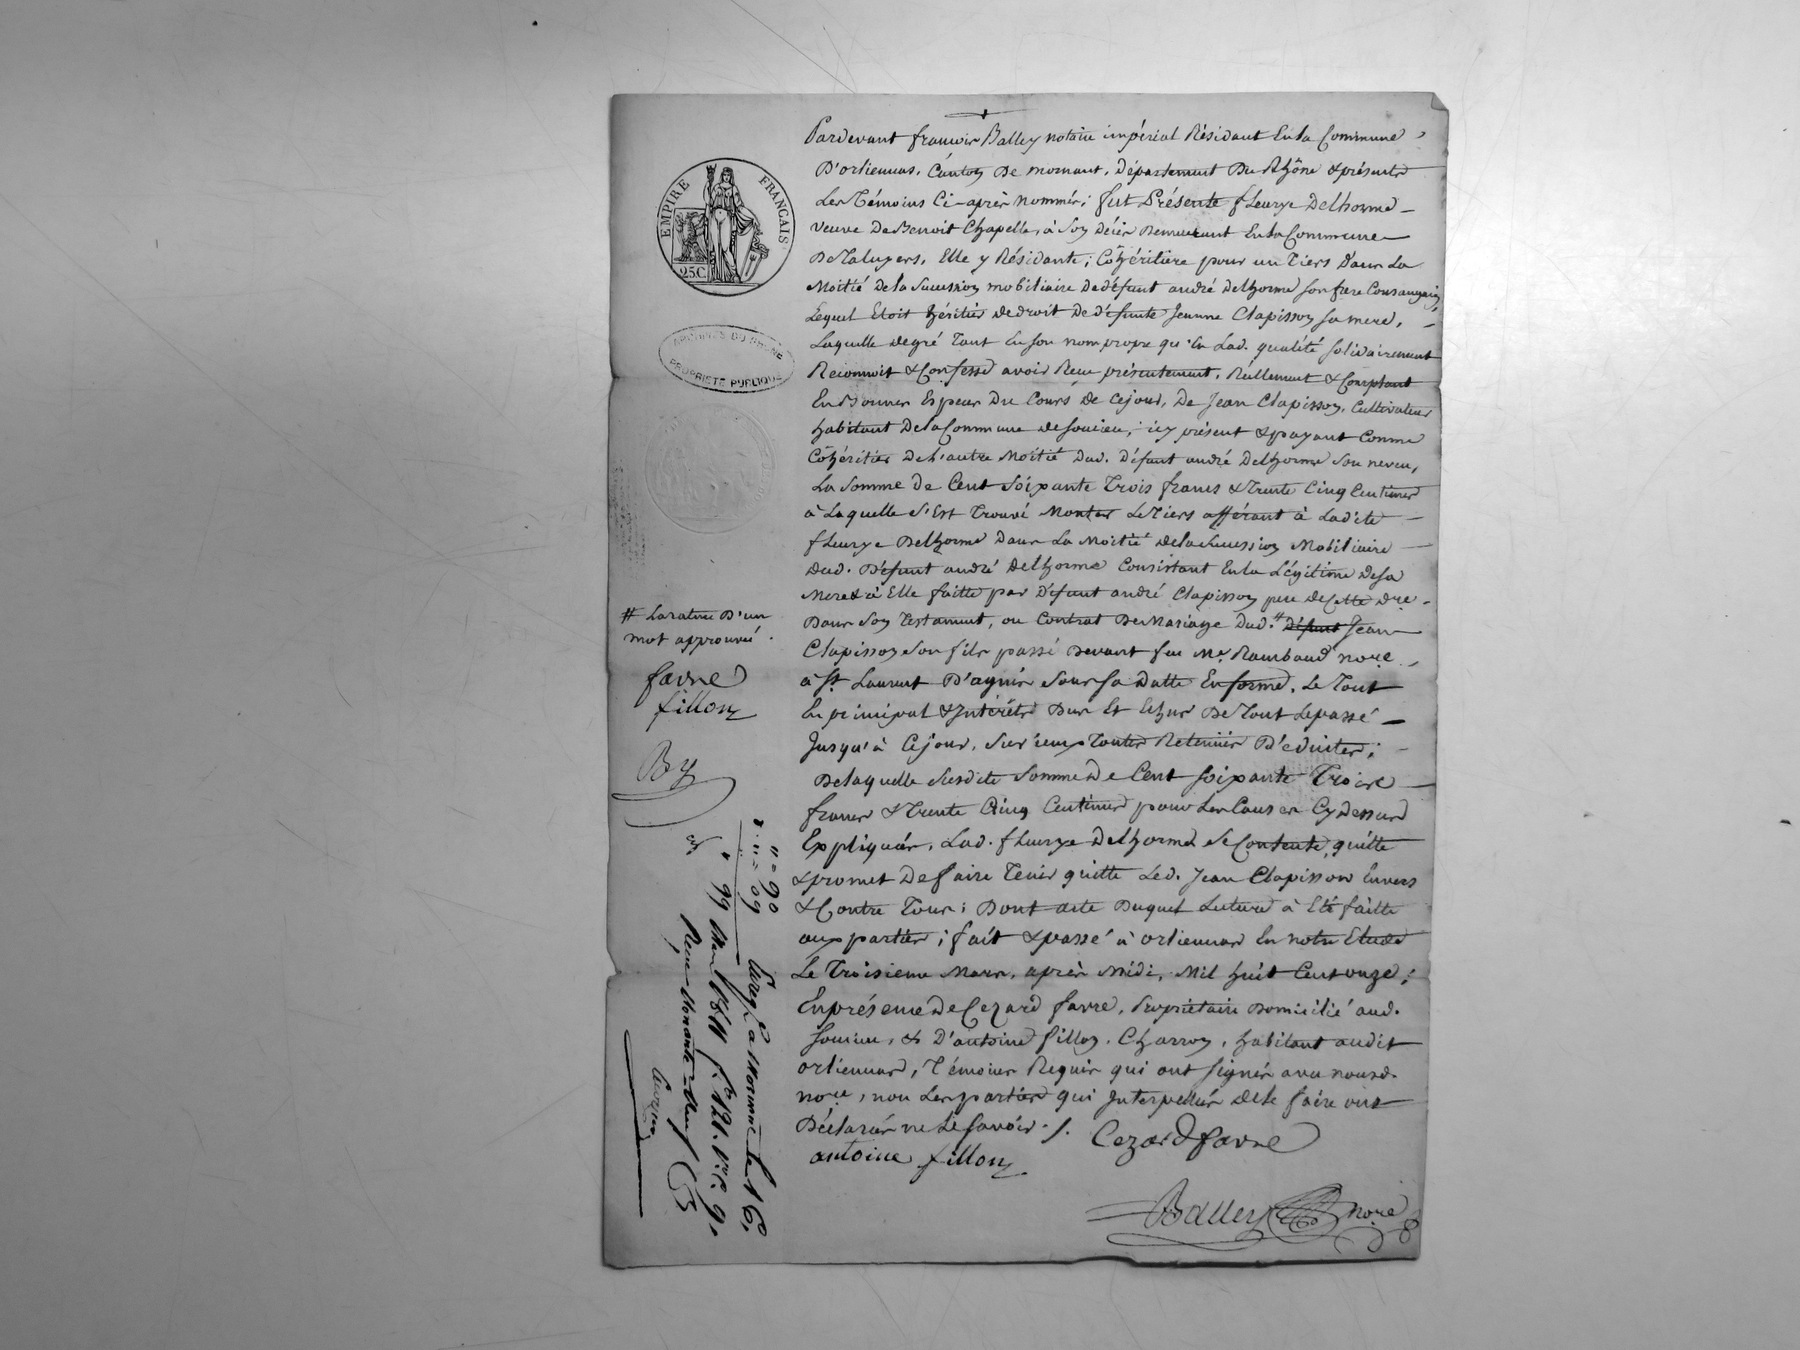 Pardevant francois Balley notaire impérial Résidant En la Commune
D'orliennas, Canton De mornant, Département Du Rhône & présents
Les Témoins Ci-après Nommés; fut Présente fleurye Delhorme
veuve De Benoit Chapelle, à Son décès Demeurant En la Commune
De Taluyers, Elle y Résidante; Cohéritière pour un Tiers Dans La
Moitié De la Succession mobiliaire De défunt andré Delhorme son frere Consanguin,
Lequel Etoit héritier De droit De défunte Jeanne Clapisson sa mere,
Laquelle De gré Tant En son nom propre qu'En Lad. qualité solidairement
Reconnoit & Confesse avoir Reçu présentement, Réellement & Comptant
En Bonnes Especes Du Cours De Cejour, De Jean Clapisson, Cultivateur
habitant De la Commune De Soucieu, icy présent & payant Comme
Cohéritier De L'autre Moitié Dud. Défunt andré Delhorme Son neveu,
La Somme De Cent Soixante Trois francs & Trente Cinq Centimes
à Laquelle S'Est Trouvé Monter Le Tiers afférant à Ladite
fleurye Delhorme Dans La Moitié De la Succession Mobiliaire
Dud. Défunt andré Delhorme Consistant En la Légitime De sa
Mere & à Elle faitte par Défunt andré Clapisson pere De Cette Dre
Dans Son Testament, ou Contrat De Mariage Dud. # Défunt Jean
Clapisson Son fils passé Devant feu Me. Raimbaud nore
à St. Laurent D'agnis Sous Sa Datte En forme, Le Tout
En principal & Intérêts Dus Et Echus De Tout Le passé
Jusqu'à Cejour, Sur iceux Toutes Retenües D'eduites;
De laquelle Susdite Somme De Cent Soixante Trois
francs & Trente Cinq Centimes pour Les Causes Cy Dessus
Expliquées, Lad. fleurye Delhorme Se Contente, quitte
& promet De faire Tenir quitte Led. Jean Clapisson Envers
& Contre Tous; Dont acte Duquel Lecture à Eté faitte
aux parties; fait & passé à orliennas En notre Etude
Le Troisieme Mars, après Midi, Mil huit Cent onze;
En présence De Cezard favre, Propriétaire Domicilié aud.
Soucieu, & D'antoine fillon, Charron, habitant audit
orliennas, Témoins Requis qui ont Signés avec nousd.
nore, non Les parties qui Interpellées De le faire ont
Déclarés ne Le Savoir.
Cezard favre
antoine fillon
Balley nore
EMPIRE FRANCAIS
25C.
ARCHIVES DU RHÔNE
PROPRIETE PUBLIQUE
# La rature D'un
mot approuvée.
favre
fillon
By
Enreg. à Mornant le 16
Mars 1811 f° 121. v° C. 9.
Reçu
90
09
99